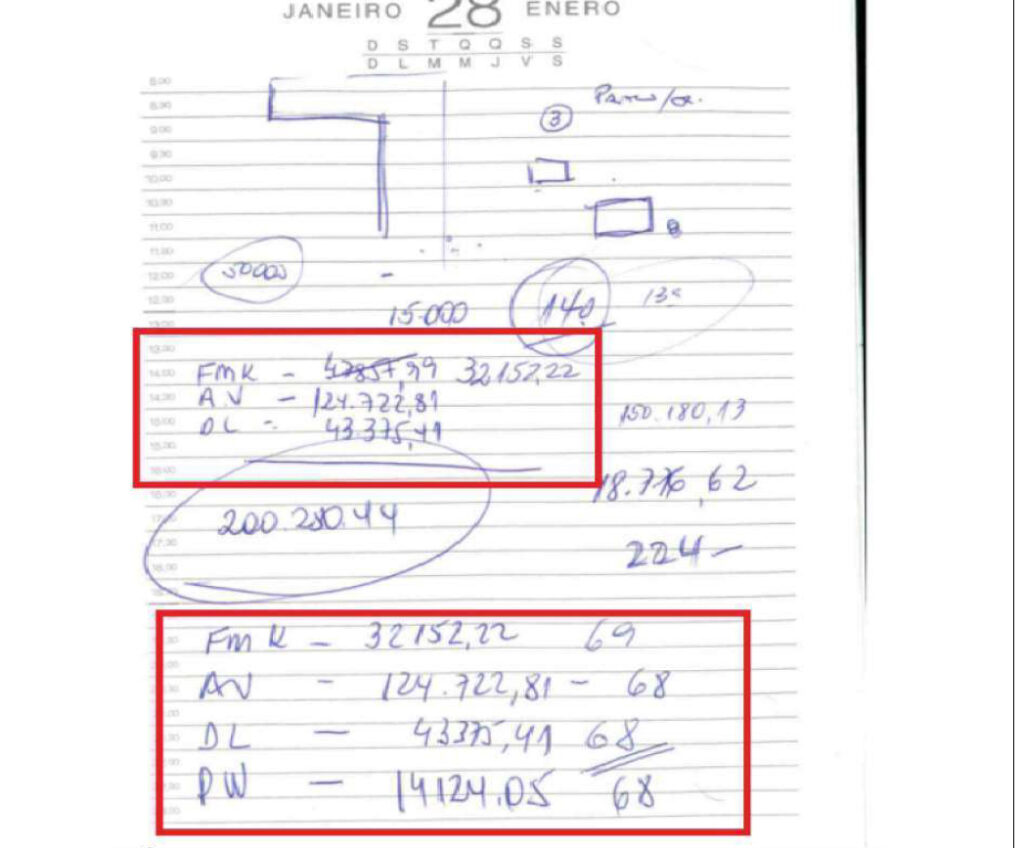 JANEIRO 28 ENERO
D S T Q Q S S
D L M M J V S
8:00
8:30
9:00
9:30
10:00
10:30
11:00
11:30
12:00
12:30
13:00
13:30
14:00
14:30
15:00
15:30
16:00
3
50000
15.000
140
FMK - 47857,99 32152,22
AV - 124.722,81
DL - 43.375,41
150.180,13
18.776,62
200.250.44
224 -
FMK - 32152,22 69
AV - 124.722,81 - 68
DL - 43375,41 68
PW - 14124.05 68